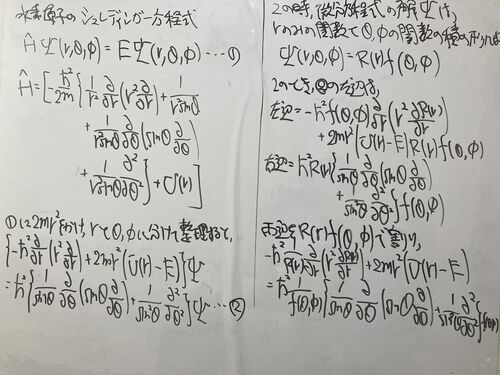 水素原子のシュレディンガー方程式
ĤΨ(r,θ,φ)=EΨ(r,θ,φ)…①
Ĥ=[-ħ²/2m{1/r² ∂/∂r(r²∂/∂r)+1/r²sinθ
+1/r²sinθ ∂/∂θ(sinθ ∂/∂θ)
+1/r²sinθ ∂²/∂θ²}+U(r)]
①に2mr²をかけ、rとθ,φに分けて整理すると、
{-ħ² ∂/∂r(r²∂/∂r)+2mr²(U(r)-E)}Ψ
=ħ²{1/sinθ ∂/∂θ(sinθ ∂/∂θ)+1/sin²θ ∂²/∂θ²}Ψ…②
この時、微分方程式の解Ψは、
rのみの関数とθ,φの関数の積の形
Ψ(r,θ,φ)=R(r)f(θ,φ)
このとき、②の左辺は、
左辺=-ħ²f(θ,φ)∂/∂r(r²∂R(r)/∂r)
+2mr²(U(r)-E)R(r)f(θ,φ)
右辺=ħ²R(r){1/sinθ ∂/∂θ(sinθ ∂/∂θ)
+1/sin²θ ∂²/∂θ²}f(θ,φ)
両辺をR(r)f(θ,φ)で割り、
-ħ² 1/R(r) ∂/∂r(r²∂R(r)/∂r)+2mr²(U(r)-E)
=ħ² 1/f(θ,φ){1/sinθ ∂/∂θ(sinθ ∂/∂θ)+1/sin²θ ∂²/∂θ²}f(θ,φ)